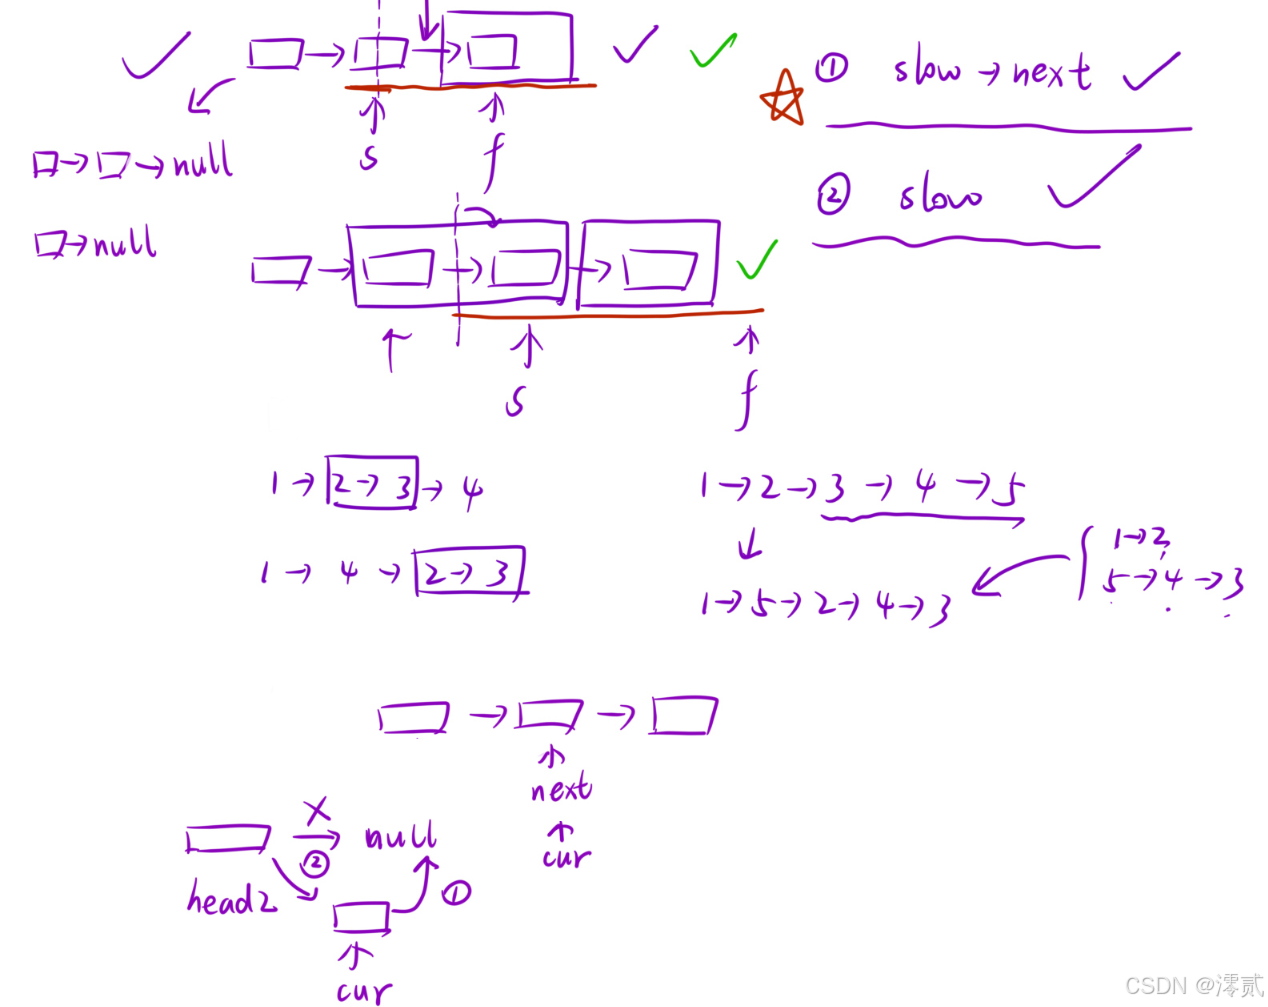 ① slow → next
s f
□ → □ → null
② slow
□ → null
s f
1 → 2 → 3 → 4
1 → 2 → 3 → 4 → 5
1 → 2
1 → 4 → 2 → 3
5 → 4 → 3
1 → 5 → 2 → 4 → 3
next
cur
X
② null
head2
①
cur
CSDN @澪贰